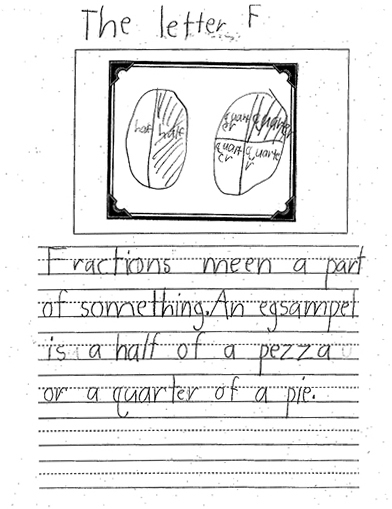 The letter F
half half
quart quarter
er
quart quarte
er r
Fractions meen a part
of somnething. An egsampel
is a half of a pezza
or a quarter of a pie.